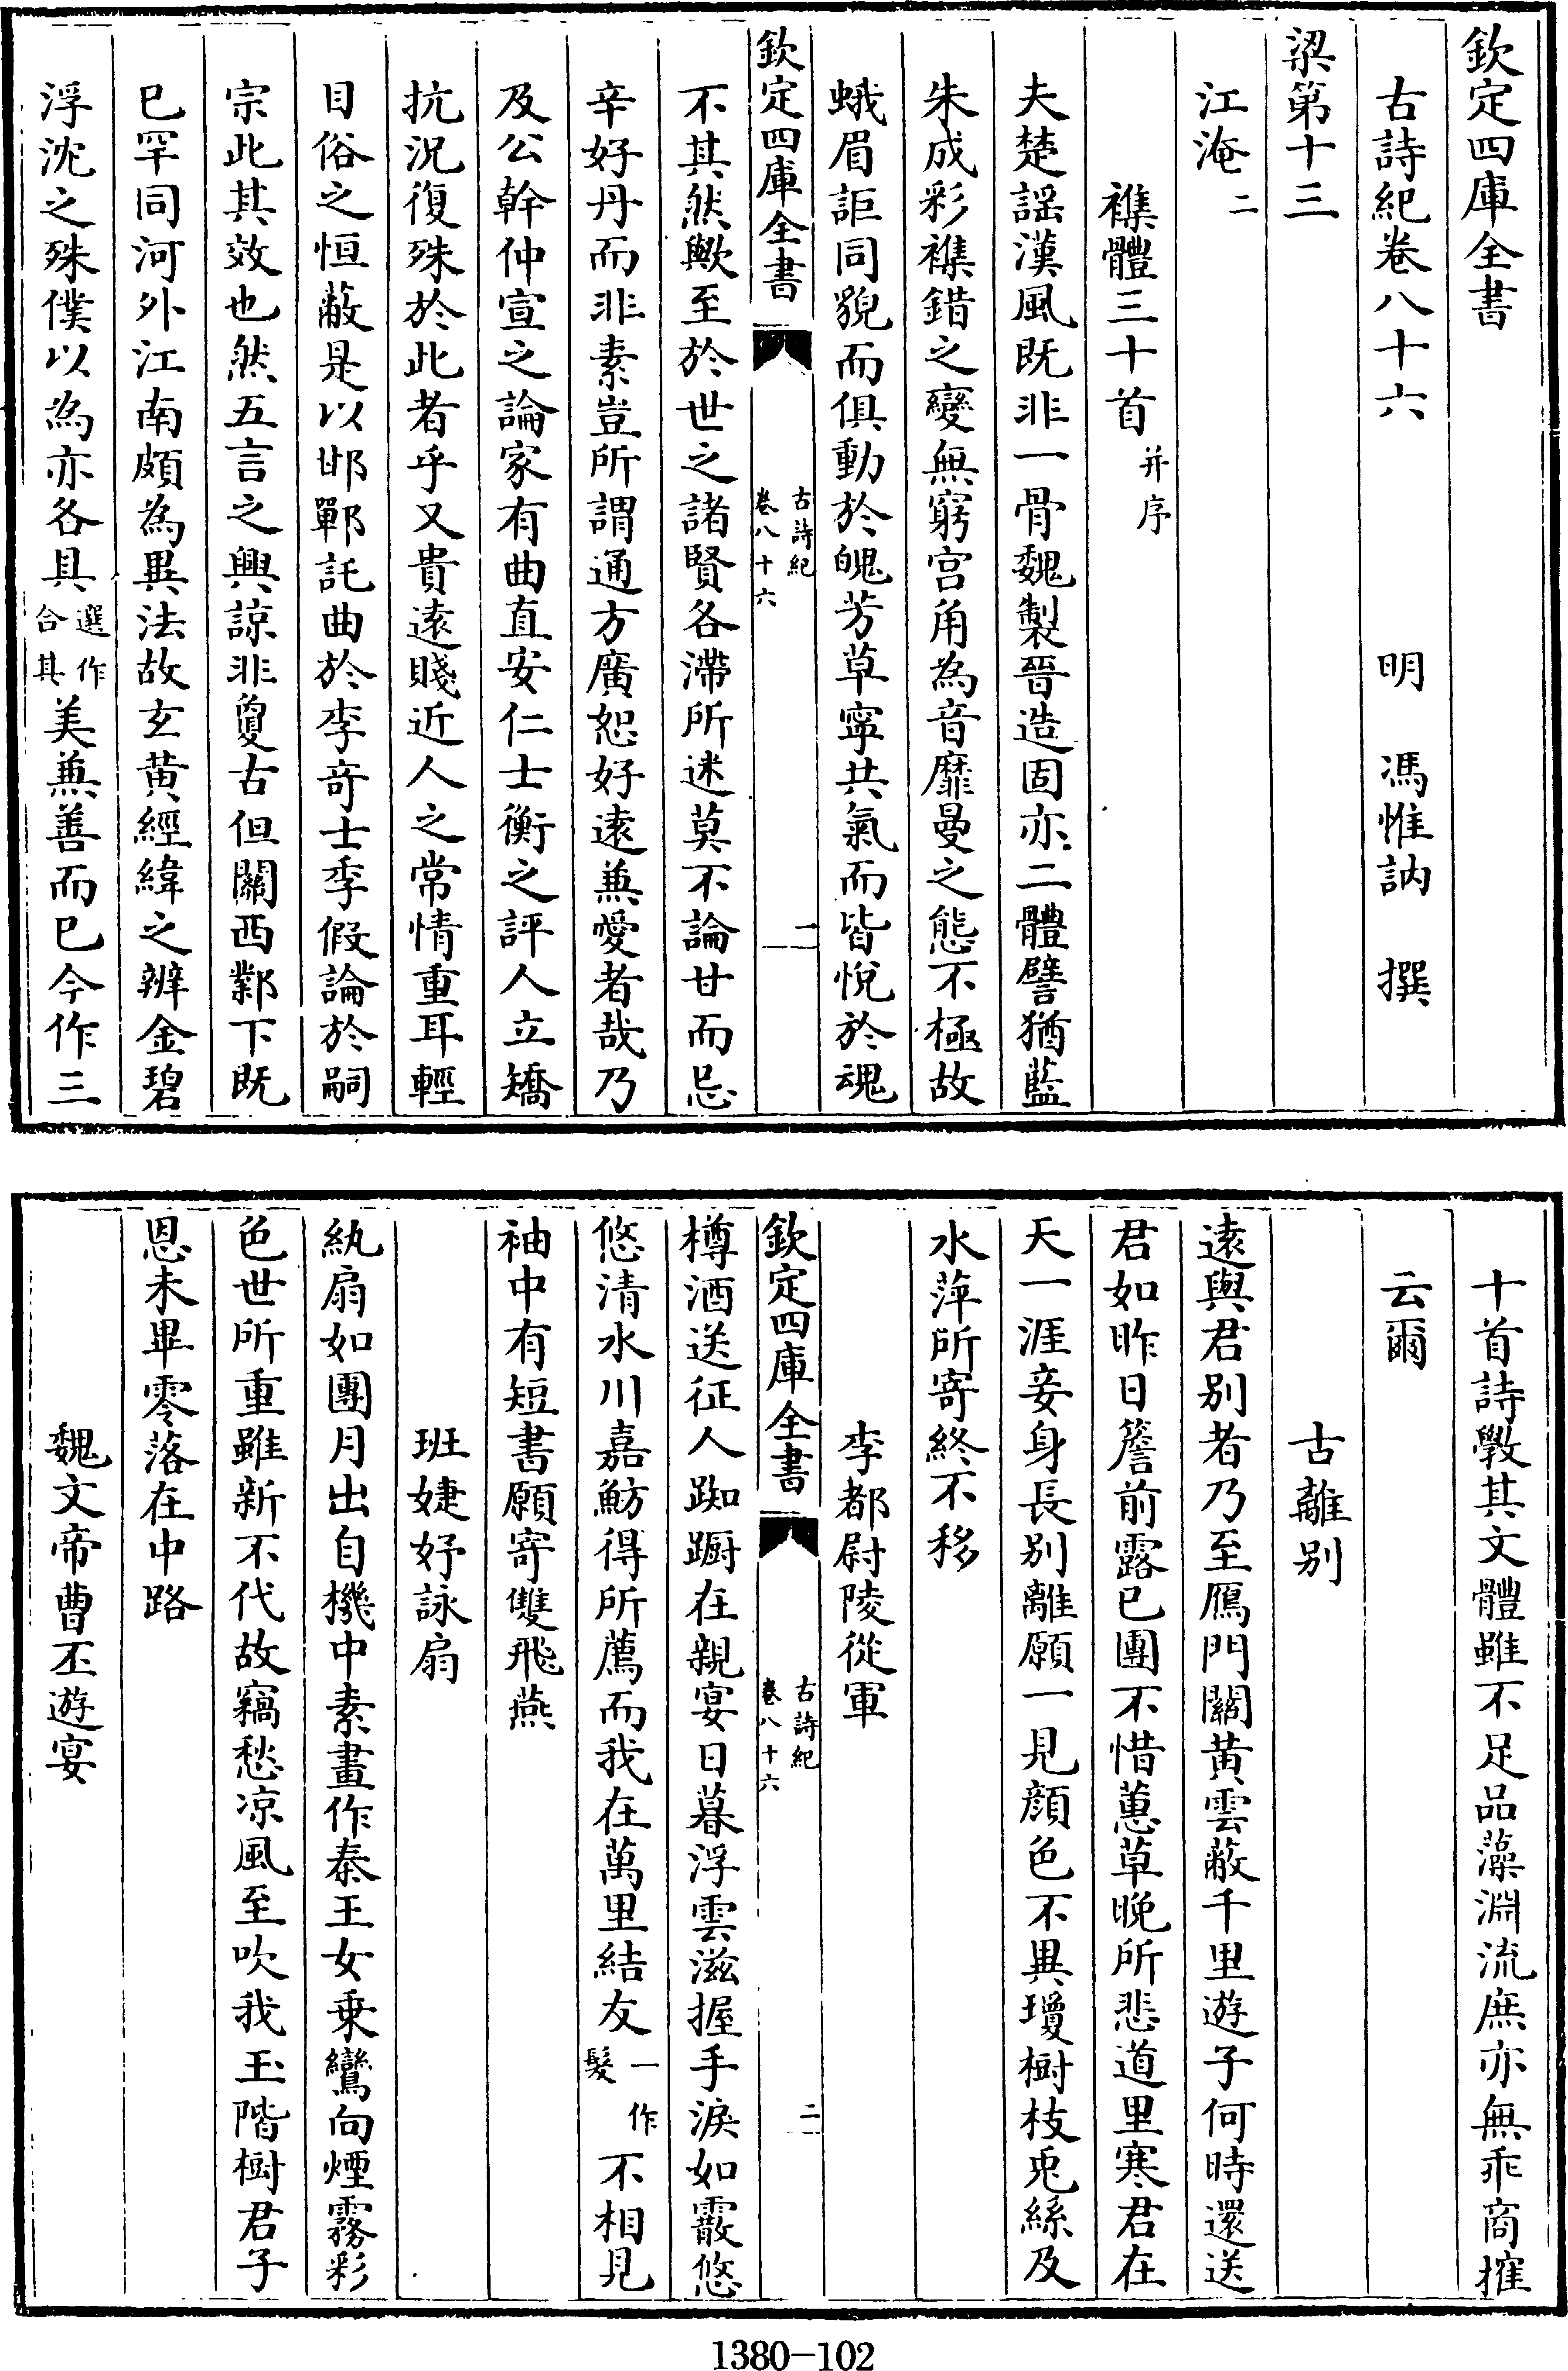 欽定四庫全書
古詩紀卷八十六　明　馮惟訥　撰
梁第十三
江淹二
襍體三十首并序
夫楚謡漢風既非一骨魏製晉造固亦二體譬猶藍
朱成彩襍錯之變無窮宫角為音靡曼之態不極故
蛾眉詎同貌而俱動於魄芳草寧共氣而皆悅於魂
欽定四庫全書　古詩紀卷八十六　一
不其然歟至於世之諸賢各滯所迷莫不論甘而忌
辛好丹而非素豈所謂通方廣恕好遠兼愛者哉乃
及公幹仲宣之論家有曲直安仁士衡之評人立矯
抗況復殊於此者乎又貴遠賤近人之常情重耳輕
目俗之恒蔽是以邯鄲託曲於李奇士季假論於嗣
宗此其效也然五言之興諒非夐古但關西鄴下既
已罕同河外江南頗為異法故玄黄經緯之辨金碧
浮沈之殊僕以為亦各具選作合其美兼善而已今作三
十首詩斆其文體雖不足品藻淵流庶亦無乖商搉
云爾
古離别
遠與君别者乃至鴈門關黄雲蔽千里遊子何時還送
君如昨日簷前露已團不惜蕙草晚所悲道里寒君在
天一涯妾身長别離願一見顔色不異瓊樹枝兎絲及
水萍所寄終不移
李都尉陵從軍
欽定四庫全書　古詩紀卷八十六　二
樽酒送征人踟蹰在親宴日暮浮雲滋握手淚如霰悠
悠清水川嘉魴得所薦而我在萬里結友一作髮不相見
袖中有短書願寄雙飛燕
班婕妤詠扇
紈扇如團月出自機中素畫作秦王女乗鸞向煙霧彩
色世所重雖新不代故竊愁凉風至吹我玉階樹君子
恩未畢零落在中路
魏文帝曹丕遊宴
1380-102